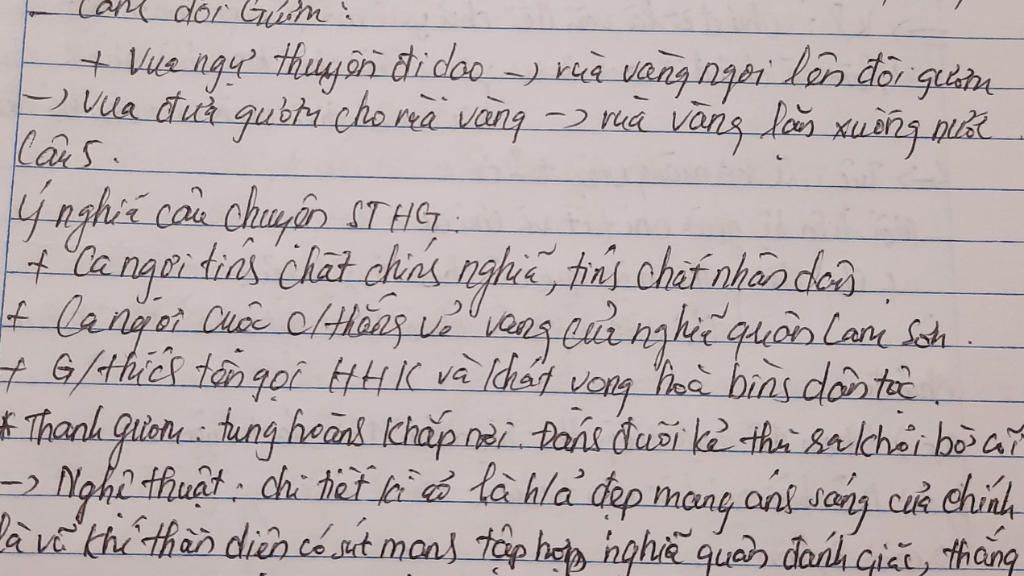 - Cảm đòi Gươm:
+ Vua ngự thuyền đi dạo -> rùa vàng ngoi lên đòi gươm
-> vua đưa gươm cho rùa vàng -> rùa vàng lặn xuống nước.
Câu 5.
Ý nghĩa câu chuyện STHG:
+ Ca ngợi tính chất chính nghĩa, tính chất nhân dân.
+ Ca ngợi cuộc c/thắng vẻ vang của nghĩa quân Lam Sơn.
+ G/thích tên gọi HHK và khát vọng hoà bình dân tộc.
* Thanh gươm: tung hoành khắp nơi. Đánh đuổi kẻ thù ra khỏi bờ cõi
-> Nghệ thuật: chi tiết kì ảo là h/ả đẹp mang ánh sáng của chính
là vũ khí thần diệu có sức mạnh tập hợp nghĩa quân đánh giặc, thắng